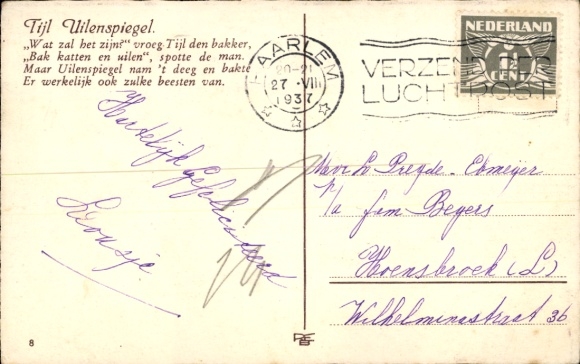 Tijl Uilenspiegel.
„Wat zal het zijn?" vroeg Tijl den bakker,
„Bak katten en uilen", spotte de man.
Maar Uilenspiegel nam 't deeg en bakte
Er werkelijk ook zulke beesten van.
HAARLEM
20-21
27 · VIII
1937
VERZENDT PER
LUCHTPOST
NEDERLAND
1½
CENT
Hartelijk Gefeliciteerd
Mevr. L. Preyde-Ebmeyer
p/a fam Beyers
Hoensbroek (L)
Wilhelminastraat 36
8